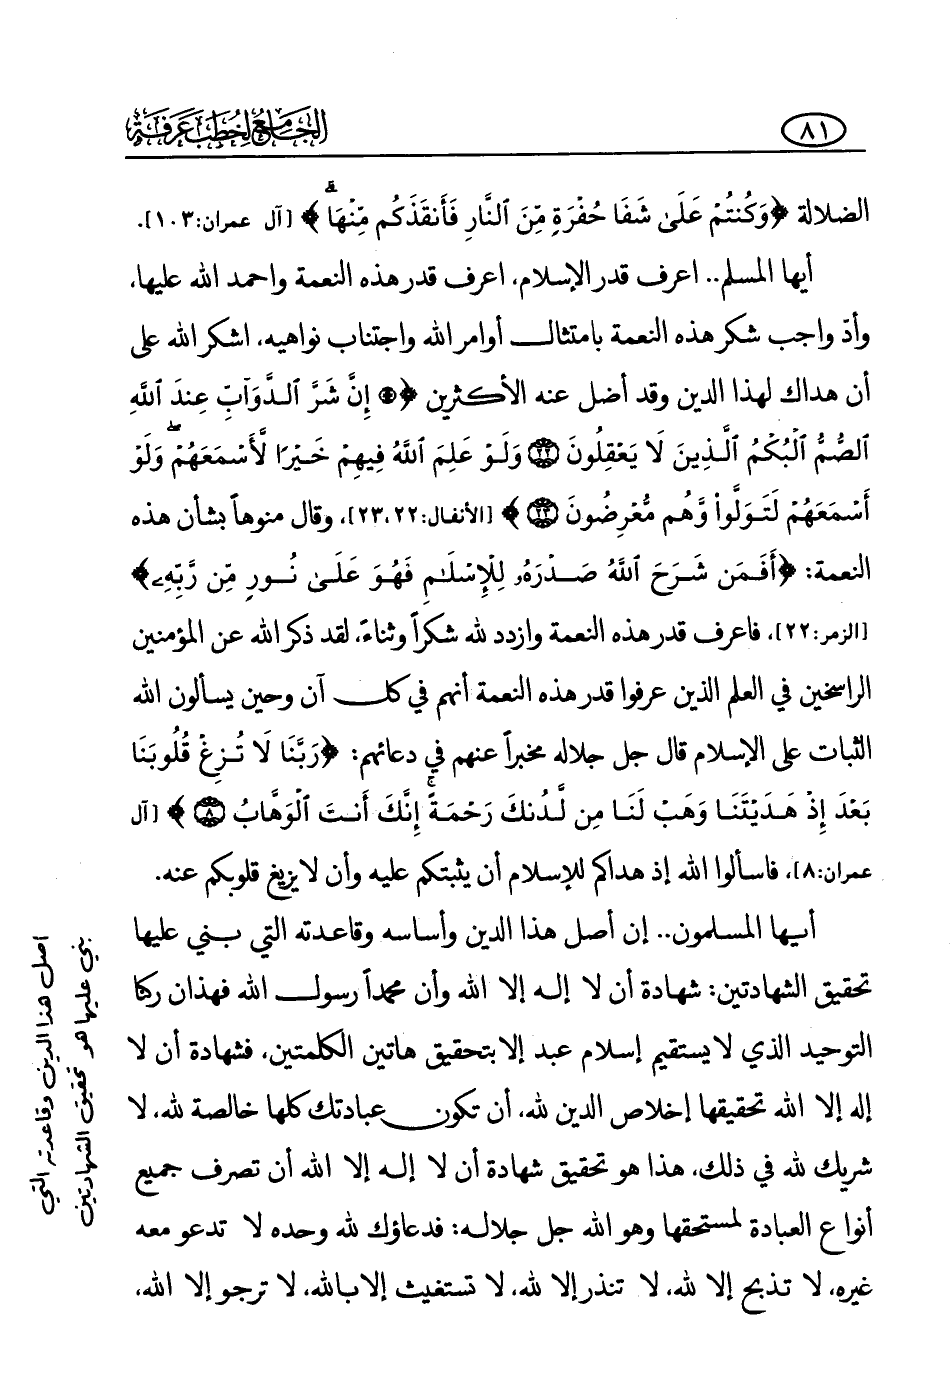 ٨١
الجامع لخطب عرفة
الضلالة ﴿وَكُنتُمْ عَلَىٰ شَفَا حُفْرَةٍ مِّنَ ٱلنَّارِ فَأَنقَذَكُم مِّنْهَا ۗ﴾ [آل عمران:١٠٣].
أيها المسلم.. اعرف قدر الإسلام، اعرف قدر هذه النعمة واحمد الله عليها،
وأدّ واجب شكر هذه النعمة بامتثال أوامر الله واجتناب نواهيه، اشكر الله على
أن هداك لهذا الدين وقد أضل عنه الأكثرين ﴿۞ إِنَّ شَرَّ ٱلدَّوَآبِّ عِندَ ٱللَّهِ
ٱلصُّمُّ ٱلْبُكْمُ ٱلَّذِينَ لَا يَعْقِلُونَ ﴿٢٢﴾ وَلَوْ عَلِمَ ٱللَّهُ فِيهِمْ خَيْرًا لَّأَسْمَعَهُمْ ۖ وَلَوْ
أَسْمَعَهُمْ لَتَوَلَّوا۟ وَّهُم مُّعْرِضُونَ ﴿٢٣﴾ ﴾ [الأنفال:٢٣،٢٢]، وقال منوهاً بشأن هذه
النعمة: ﴿أَفَمَن شَرَحَ ٱللَّهُ صَدْرَهُۥ لِلْإِسْلَـٰمِ فَهُوَ عَلَىٰ نُورٍ مِّن رَّبِّهِۦ﴾
[الزمر:٢٢]، فاعرف قدر هذه النعمة وازدد لله شكراً وثناءً، لقد ذكر الله عن المؤمنين
الراسخين في العلم الذين عرفوا قدر هذه النعمة أنهم في كل آن وحين يسألون الله
الثبات على الإسلام قال جل جلاله مخبراً عنهم في دعائهم: ﴿رَبَّنَا لَا تُزِغْ قُلُوبَنَا
بَعْدَ إِذْ هَدَيْتَنَا وَهَبْ لَنَا مِن لَّدُنكَ رَحْمَةً ۚ إِنَّكَ أَنتَ ٱلْوَهَّابُ ﴿٨﴾ ﴾ [آل
عمران:٨]، فاسألوا الله إذ هداكم للإسلام أن يثبتكم عليه وأن لا يزيغ قلوبكم عنه.
أيها المسلمون.. إن أصل هذا الدين وأساسه وقاعدته التي بني عليها
تحقيق الشهادتين: شهادة أن لا إله إلا الله وأن محمداً رسول الله فهذان ركنا
التوحيد الذي لا يستقيم إسلام عبد إلا بتحقيق هاتين الكلمتين، فشهادة أن لا
إله إلا الله تحقيقها إخلاص الدين لله، أن تكون عبادتك كلها خالصة لله، لا
شريك لله في ذلك، هذا هو تحقيق شهادة أن لا إله إلا الله أن تصرف جميع
أنواع العبادة لمستحقها وهو الله جل جلاله: فدعاؤك لله وحده لا تدعو معه
غيره، لا تذبح إلا لله، لا تنذر إلا لله، لا تستغيث إلا بالله، لا ترجو إلا الله،
اصل هذا الدين وقاعدته التي
بني عليها هو تحقيق الشهادتين